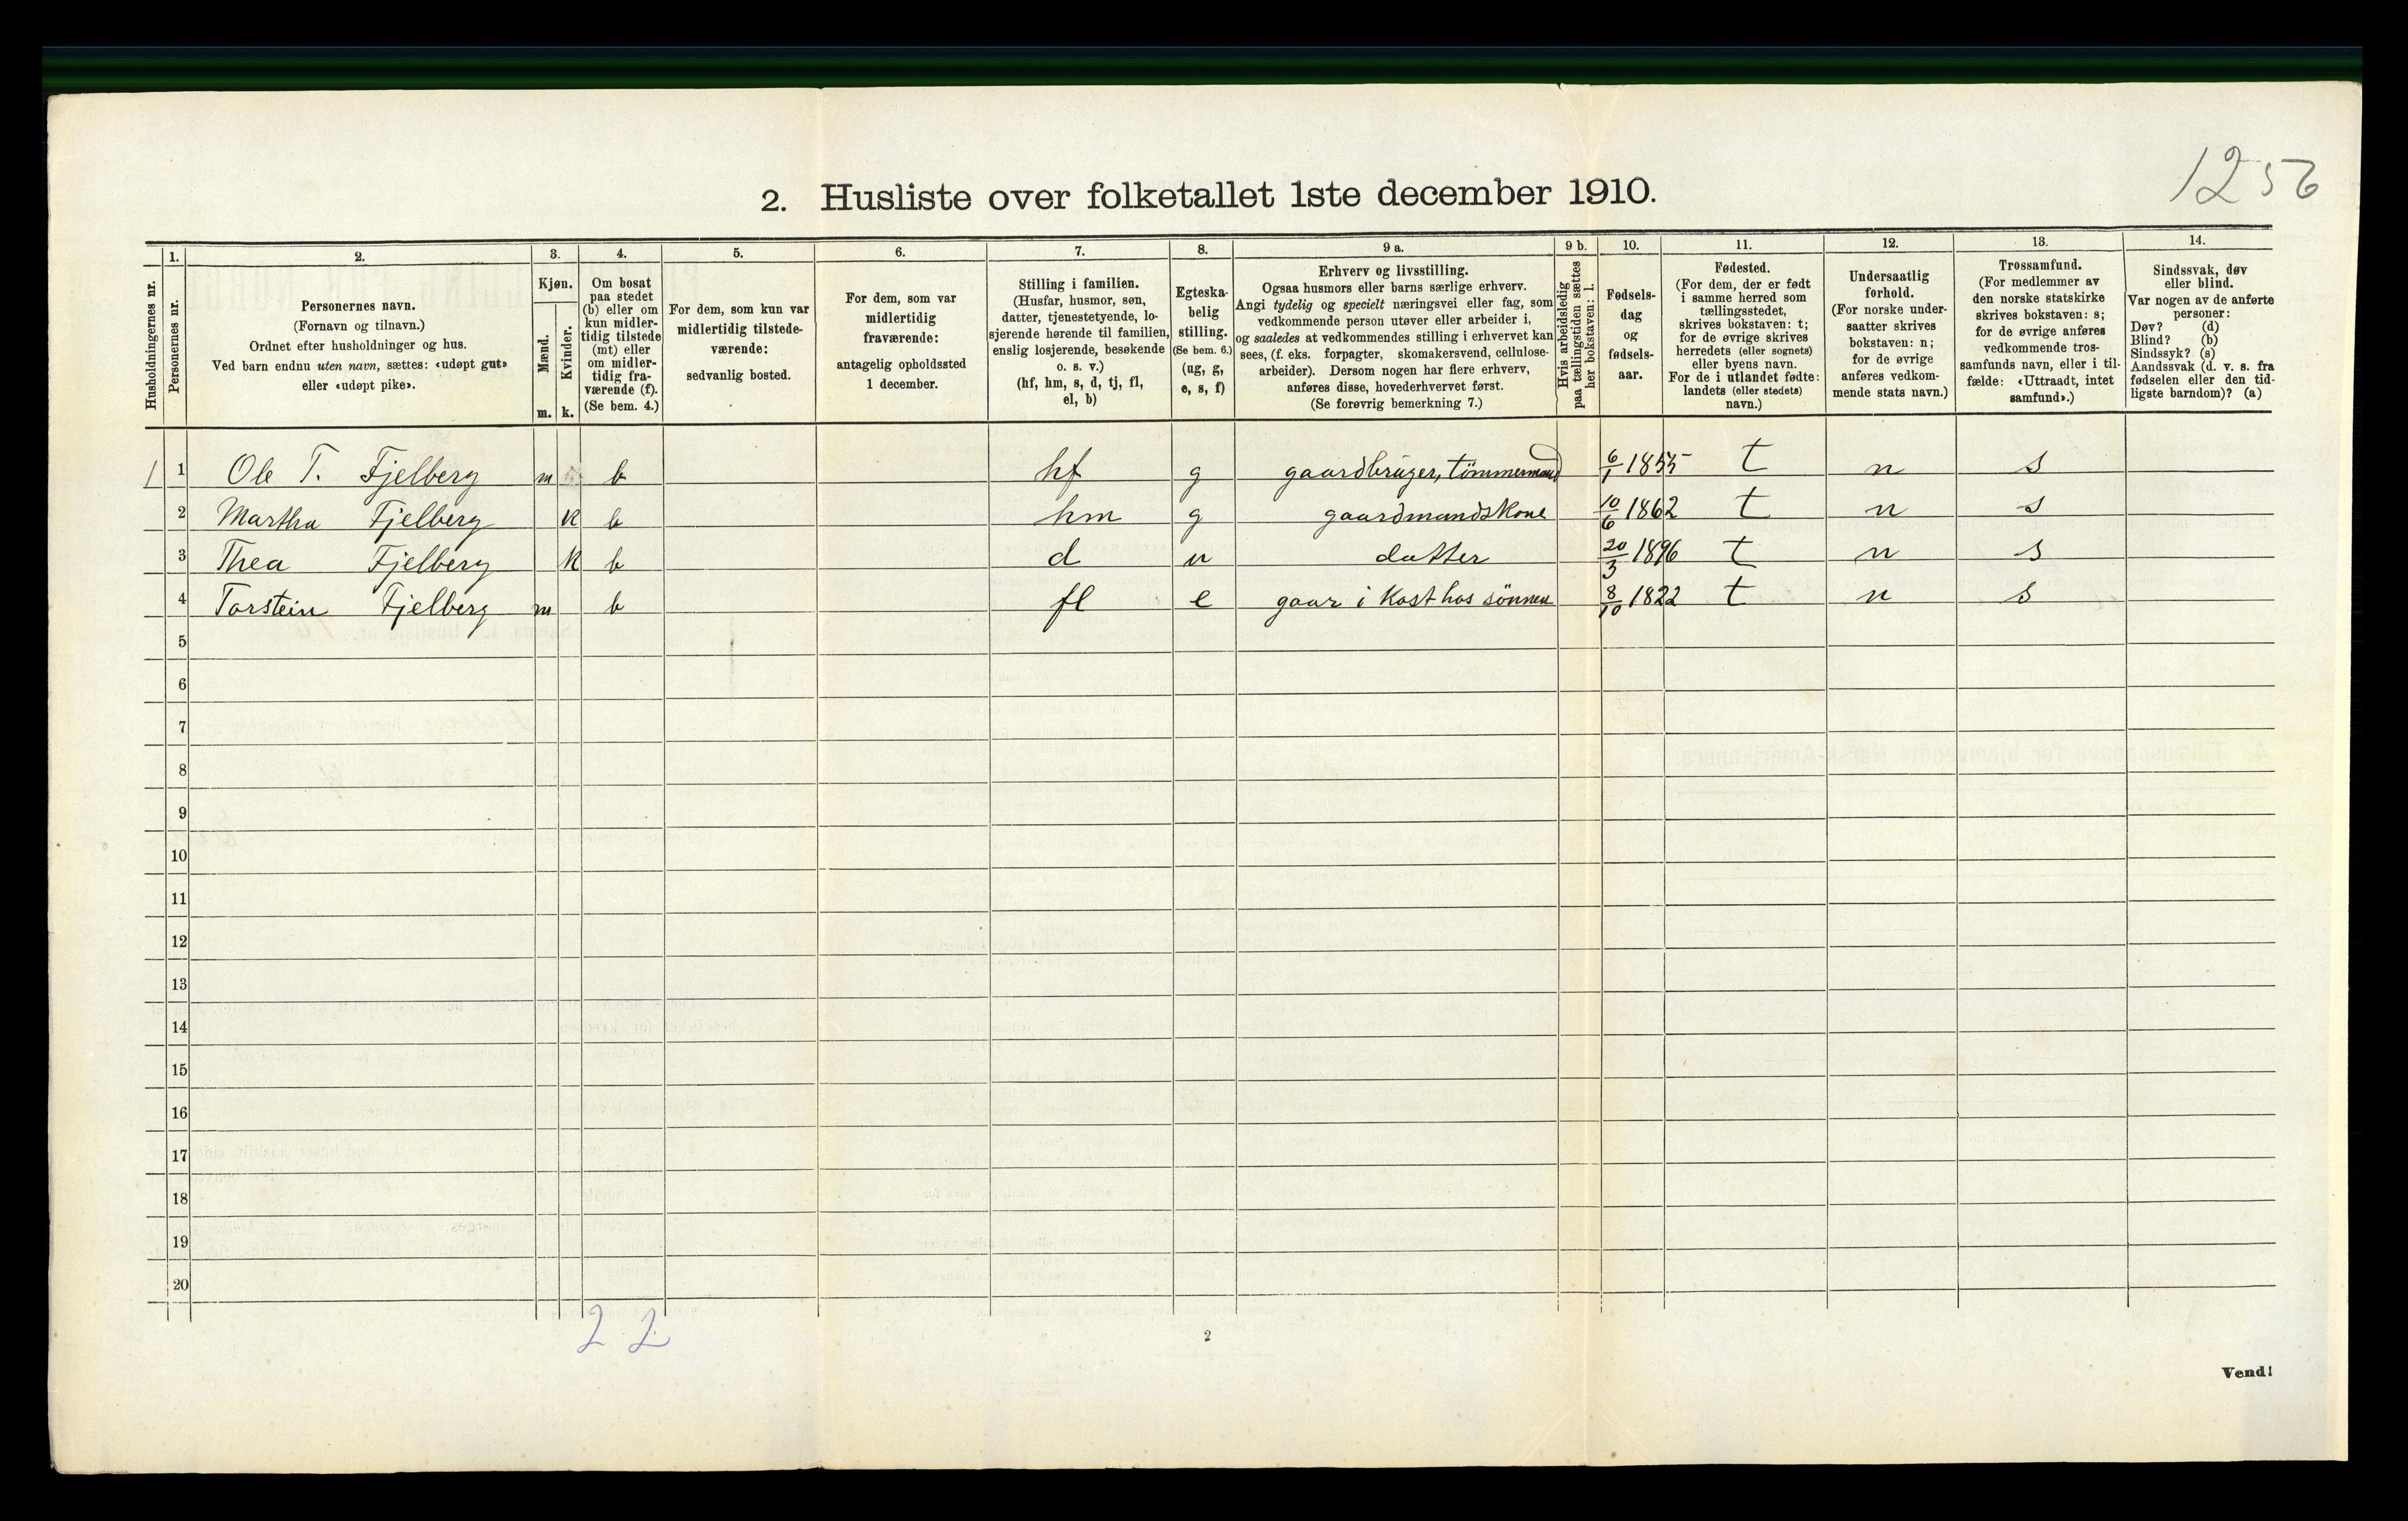 1256
2. Husliste over folketallet 1ste december 1910.
Husholdningernes nr.
1.
Personernes nr.
2.
Personernes navn.
(Fornavn og tilnavn.)
Ordnet efter husholdninger og hus.
Ved barn endnu uten navn, sættes: «udøpt gut»
eller «udøpt pike».
3.
Kjøn.
Mænd.
m.
Kvinder.
k.
4.
Om bosat
paa stedet
(b) eller om
kun midler-
tidig tilstede
(mt) eller
om midler-
tidig fra-
værende (f).
(Se bem. 4.)
5.
For dem, som kun var
midlertidig tilstede-
værende:
sedvanlig bosted.
6.
For dem, som var
midlertidig
fraværende:
antagelig opholdssted
1 december.
7.
Stilling i familien.
(Husfar, husmor, søn,
datter, tjenestetyende, lo-
sjerende hørende til familien,
enslig losjerende, besøkende
o. s. v.)
(hf, hm, s, d, tj, fl,
el, b)
8.
Egteska-
belig
stilling.
(Se bem. 6.)
(ug, g,
e, s, f)
9 a.
Erhverv og livsstilling.
Ogsaa husmors eller barns særlige erhverv.
Angi tydelig og specielt næringsvei eller fag, som
vedkommende person utøver eller arbeider i,
og saaledes at vedkommendes stilling i erhvervet kan
sees, (f. eks. forpagter, skomakersvend, cellulose-
arbeider). Dersom nogen har flere erhverv,
anføres disse, hovederhvervet først.
(Se forøvrig bemerkning 7.)
9 b.
Hvis arbeidsledig
paa tællingstiden sættes
her bokstaven: l.
10.
Fødsels-
dag
og
fødsels-
aar.
11.
Fødested.
(For dem, der er født
i samme herred som
tællingsstedet,
skrives bokstaven: t;
for de øvrige skrives
herredets (eller sognets)
eller byens navn.
For de i utlandet fødte:
landets (eller stedets)
navn.)
12.
Undersaatlig
forhold.
(For norske under-
saatter skrives
bokstaven: n;
for de øvrige
anføres vedkom-
mende stats navn.)
13.
Trossamfund.
(For medlemmer av
den norske statskirke
skrives bokstaven: s;
for de øvrige anføres
vedkommende tros-
samfunds navn, eller i til-
fælde: «Uttraadt, intet
samfund».)
14.
Sindssvak, døv
eller blind.
Var nogen av de anførte
personer:
Døv? (d)
Blind? (b)
Sindssyk? (s)
Aandssvak (d. v. s. fra
fødselen eller den tid-
ligste barndom)? (a)
1 1 Ole T. Fjelberg m b hf g gaardbruger, tömmermand 6/1 1855 t n s
2 Martha Fjelberg K b hm g gaardmandskone 10/6 1862 t n s
3 Thea Fjelberg K b d u datter 20/3 1896 t n s
4 Torstein Fjelberg m b fl e gaar i Kost hos sönnen 8/10 1822 t n s
5
6
7
8
9
10
11
12
13
14
15
16
17
18
19
20
2 2
2
Vend!